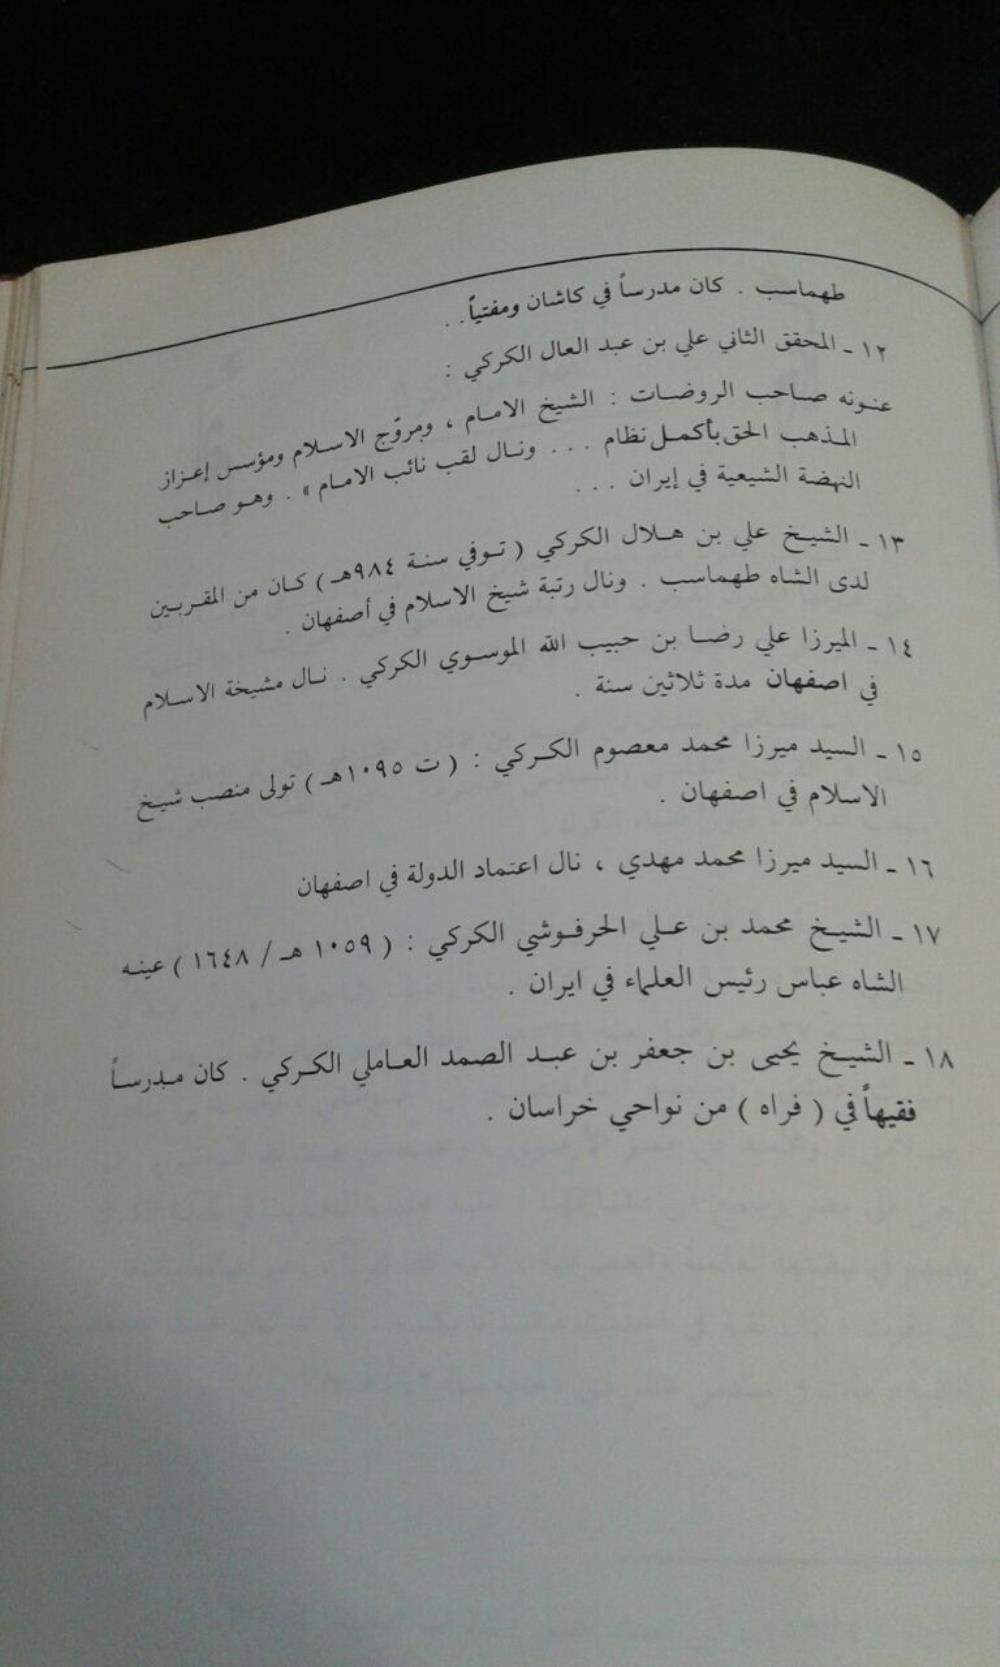 طهماسب . كان مدرساً في كاشان ومفتياً . .
١٢ ـ المحقق الثاني علي بن عبد العال الكركي :
عنونه صاحب الروضات : الشيخ الامام ، ومروّج الاسلام ومؤسس إعزاز
المذهب الحق بأكمل نظام . . . ونال لقب نائب الامام » . وهو صاحب
النهضة الشيعية في إيران . . .
١٣ ـ الشيخ علي بن هلال الكركي ( توفي سنة ٩٨٤هـ ) كان من المقربين
لدى الشاه طهماسب . ونال رتبة شيخ الاسلام في أصفهان .
١٤ ـ الميرزا علي رضا بن حبيب الله الموسوي الكركي . نال مشيخة الاسلام
في اصفهان مدة ثلاثين سنة .
١٥ ـ السيد ميرزا محمد معصوم الكركي : ( ت ١٠٩٥هـ ) تولى منصب شيخ
الاسلام في اصفهان .
١٦ ـ السيد ميرزا محمد مهدي ، نال اعتماد الدولة في اصفهان
١٧ ـ الشيخ محمد بن علي الحرفوشي الكركي : ( ١٠٥٩ هـ / ١٦٤٨ ) عينه
الشاه عباس رئيس العلماء في ايران .
١٨ ـ الشيخ يحيى بن جعفر بن عبد الصمد العاملي الكركي . كان مدرساً
فقيهاً في ( فراه ) من نواحي خراسان .